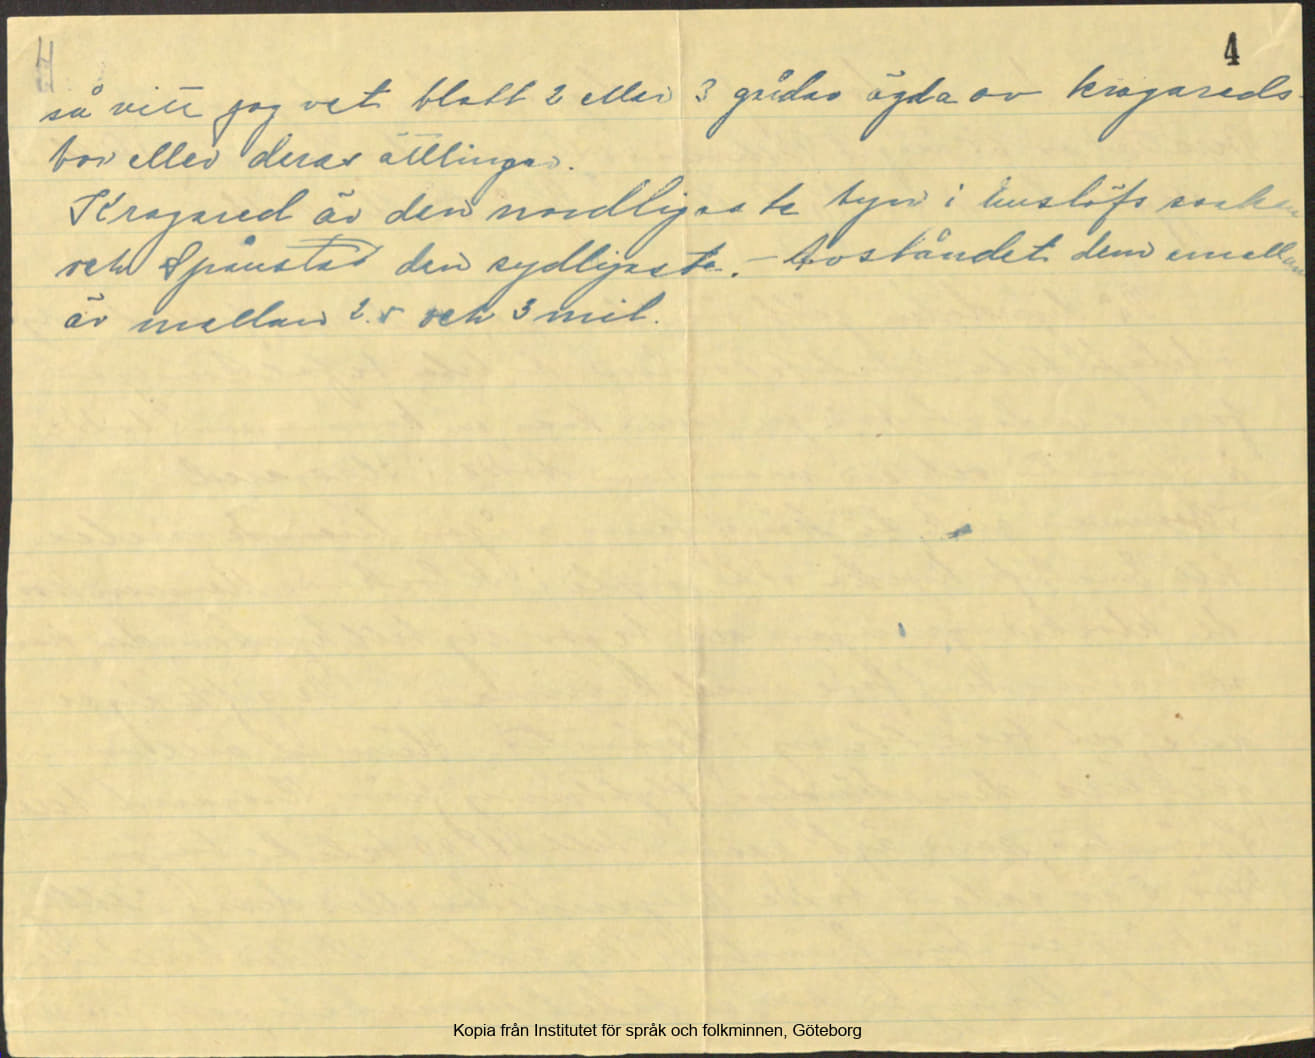 4
så vitt jag vet blott 2 eller 3 gårdar ägda av Kragareds-
bor eller deras ättlingar.
Kragared är den nordligaste byn i Enslöfs socken
och Spånstad den sydligaste. – Avståndet dem emellan
är mellan 2.5 och 3 mil.
Kopia från Institutet för språk och folkminnen, Göteborg